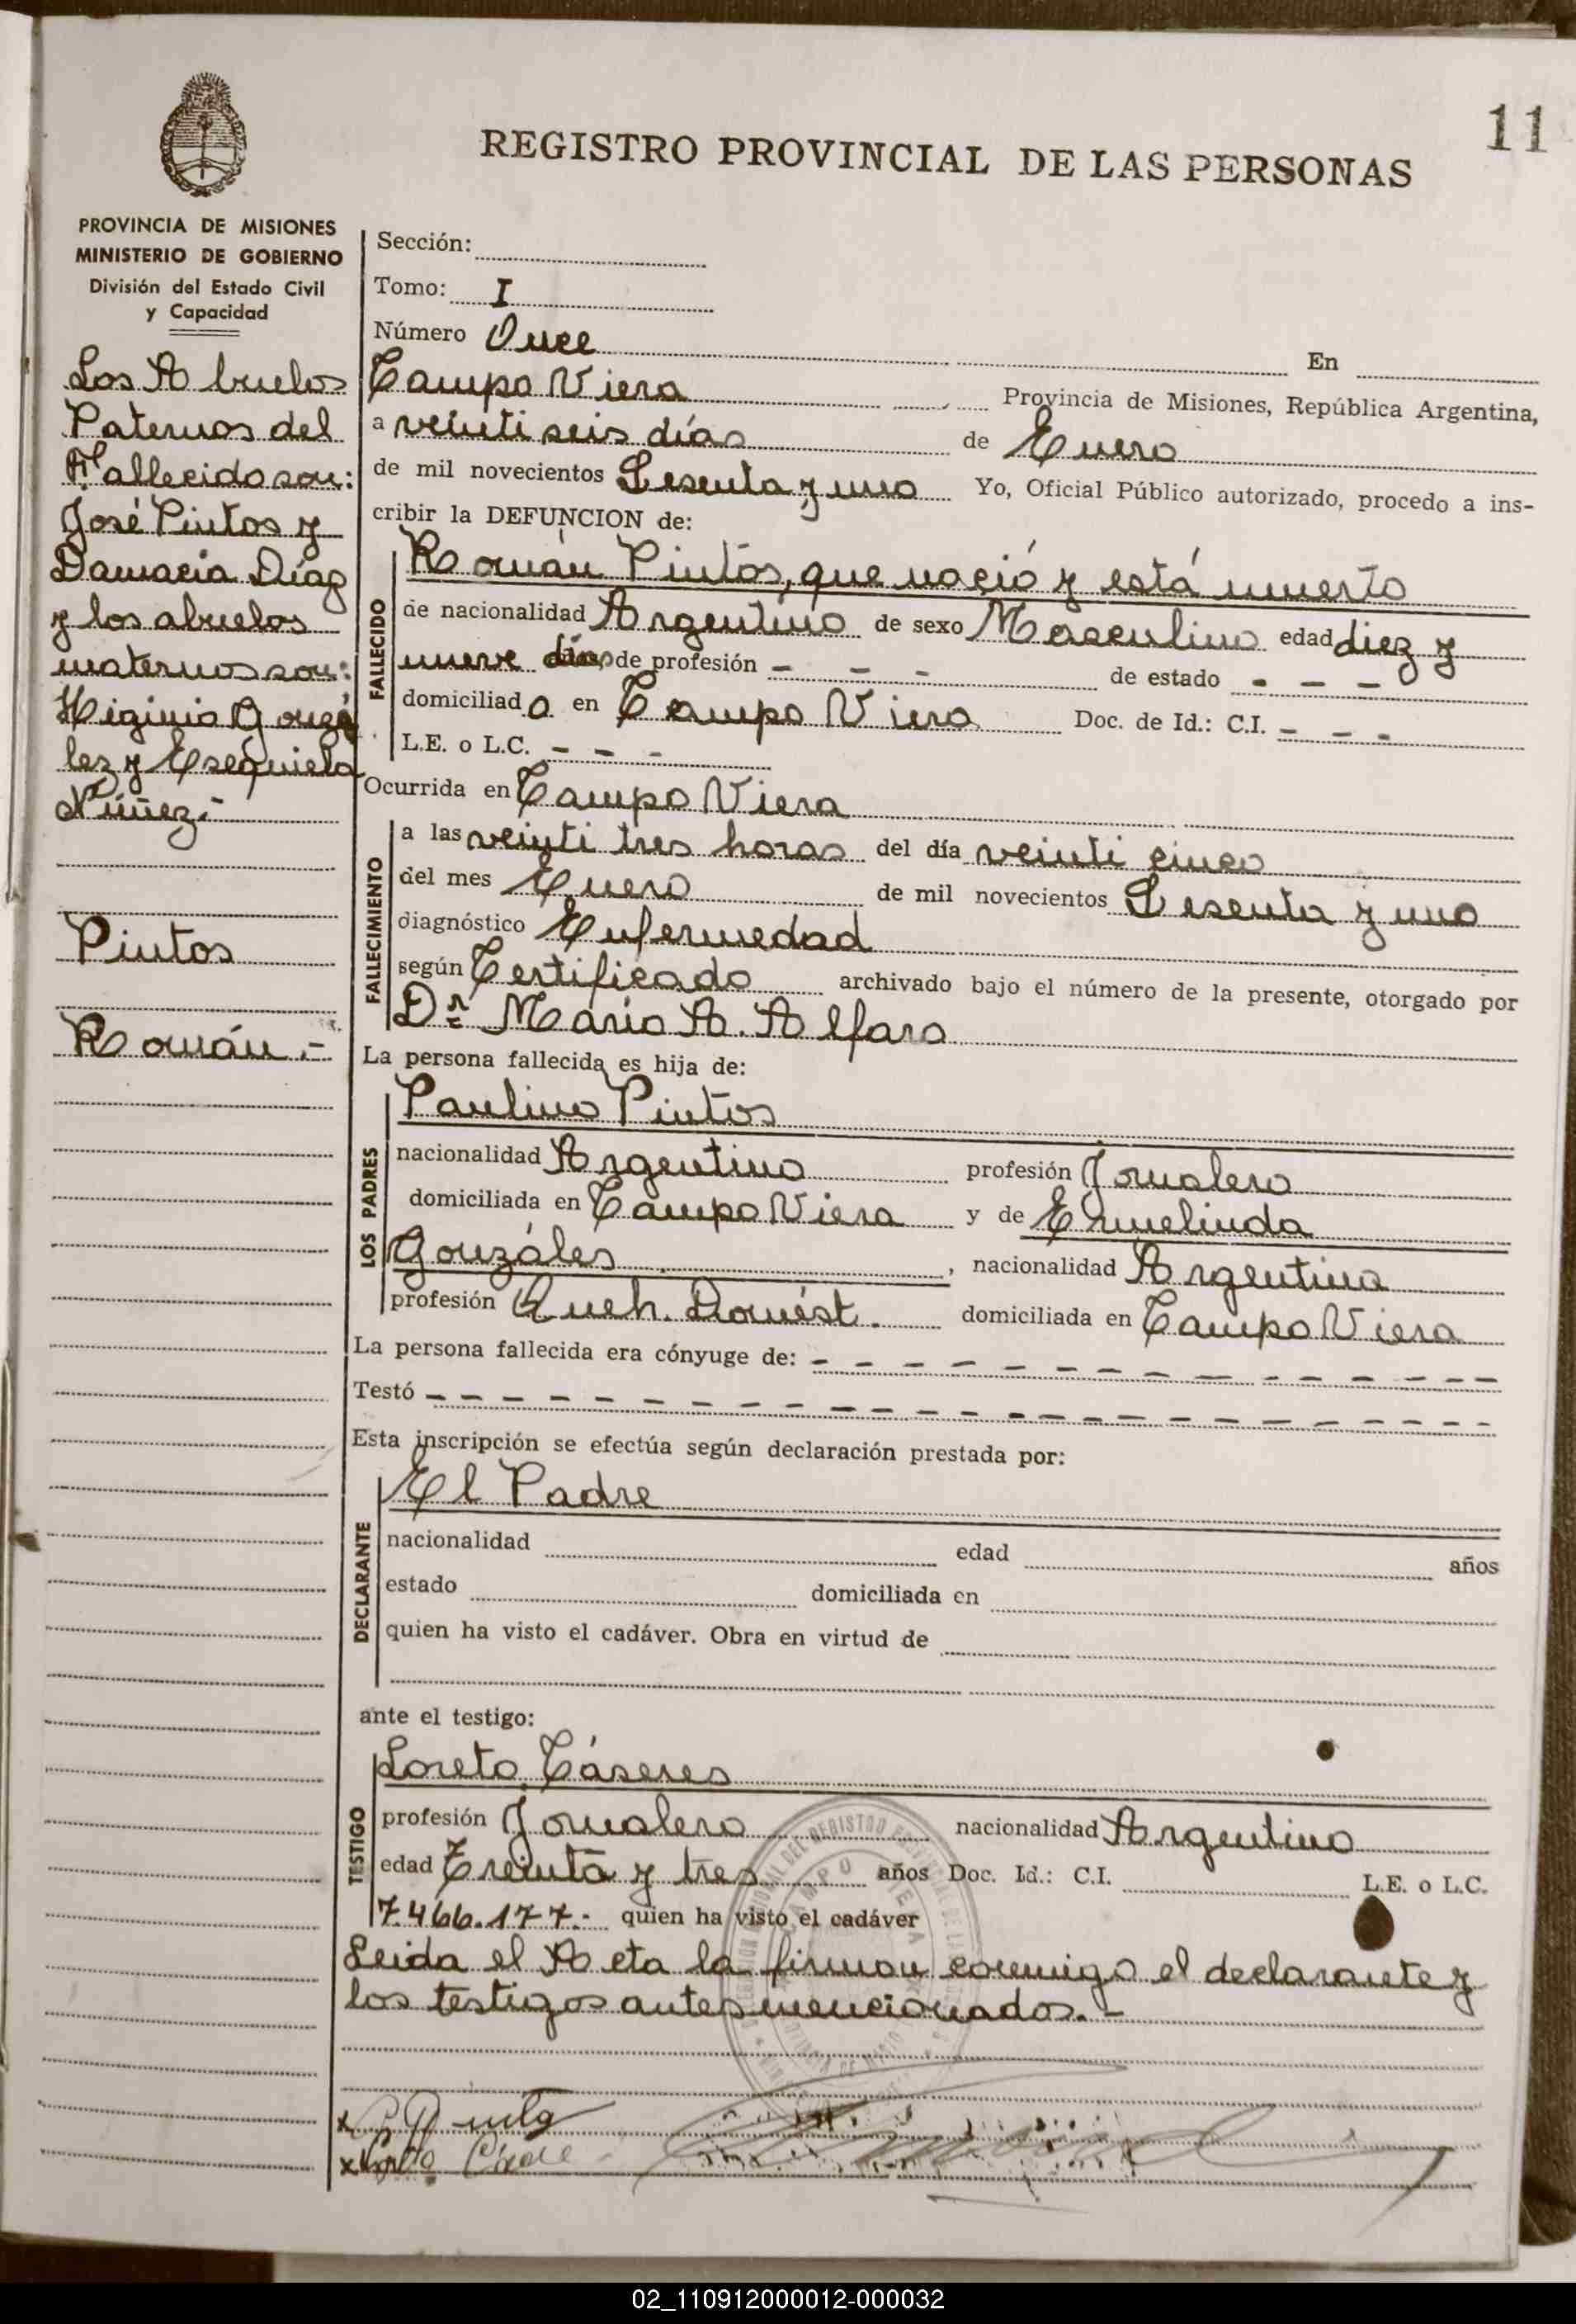 11
REGISTRO PROVINCIAL DE LAS PERSONAS
PROVINCIA DE MISIONES
MINISTERIO DE GOBIERNO
División del Estado Civil
y Capacidad
Los Abuelos
Paternos del
Fallecido son:
José Pintos y
Damacia Díaz
y los abuelos
maternos son:
Higinio Gonzá
lez y Esequiela
Núñez.-
Pintos
Román.-
Sección:
Tomo: I
Número Once En
Campo Viera Provincia de Misiones, República Argentina,
a veinti seis días de Enero
de mil novecientos Sesenta y uno Yo, Oficial Público autorizado, procedo a ins-
cribir la DEFUNCION de:
FALLECIDO
Román Pintos, que nació y está muerto
de nacionalidad Argentino de sexo Masculino edad diez y
nueve días de profesión - - - de estado - - -
domiciliado en Campo Viera Doc. de Id.: C.I. - - -
L.E. o L.C. - - -
Ocurrida en Campo Viera
FALLECIMIENTO
a las veinti tres horas del día veinti cinco
del mes Enero de mil novecientos Sesenta y uno
diagnóstico Enfermedad
según Certificado archivado bajo el número de la presente, otorgado por
Dr Mario A. Alfaro
La persona fallecida es hija de:
LOS PADRES
Paulino Pintos
nacionalidad Argentino profesión Jornalero
domiciliada en Campo Viera y de Ermelinda
Gonzáles, nacionalidad Argentina
profesión Queh. Domést. domiciliada en Campo Viera
La persona fallecida era cónyuge de: - - - - - - - - - - - - - - -
Testó - - - - - - - - - - - - - - - - - - - - - - -
Esta inscripción se efectúa según declaración prestada por:
DECLARANTE
El Padre
nacionalidad edad años
estado domiciliada en
quien ha visto el cadáver. Obra en virtud de
ante el testigo:
TESTIGO
Loreto Cáseres
profesión Jornalero nacionalidad Argentino
edad Treinta y tres años Doc. Id.: C.I. L.E. o L.C.
7.466.177.- quien ha visto el cadáver
Leida el Acta la firman conmigo el declarante y
los testigos antes mencionados.-
02_110912000012-000032